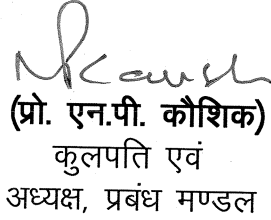 NPKaush
(प्रो. एन.पी. कौशिक)
कुलपति एवं
अध्यक्ष, प्रबंध मण्डल